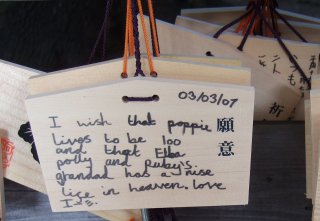 03/03/07
願意
I wish that poppie
lives to be 100
and that Ella
polly and Ruby's
grandad has a nise
lice in heaven. love
祈